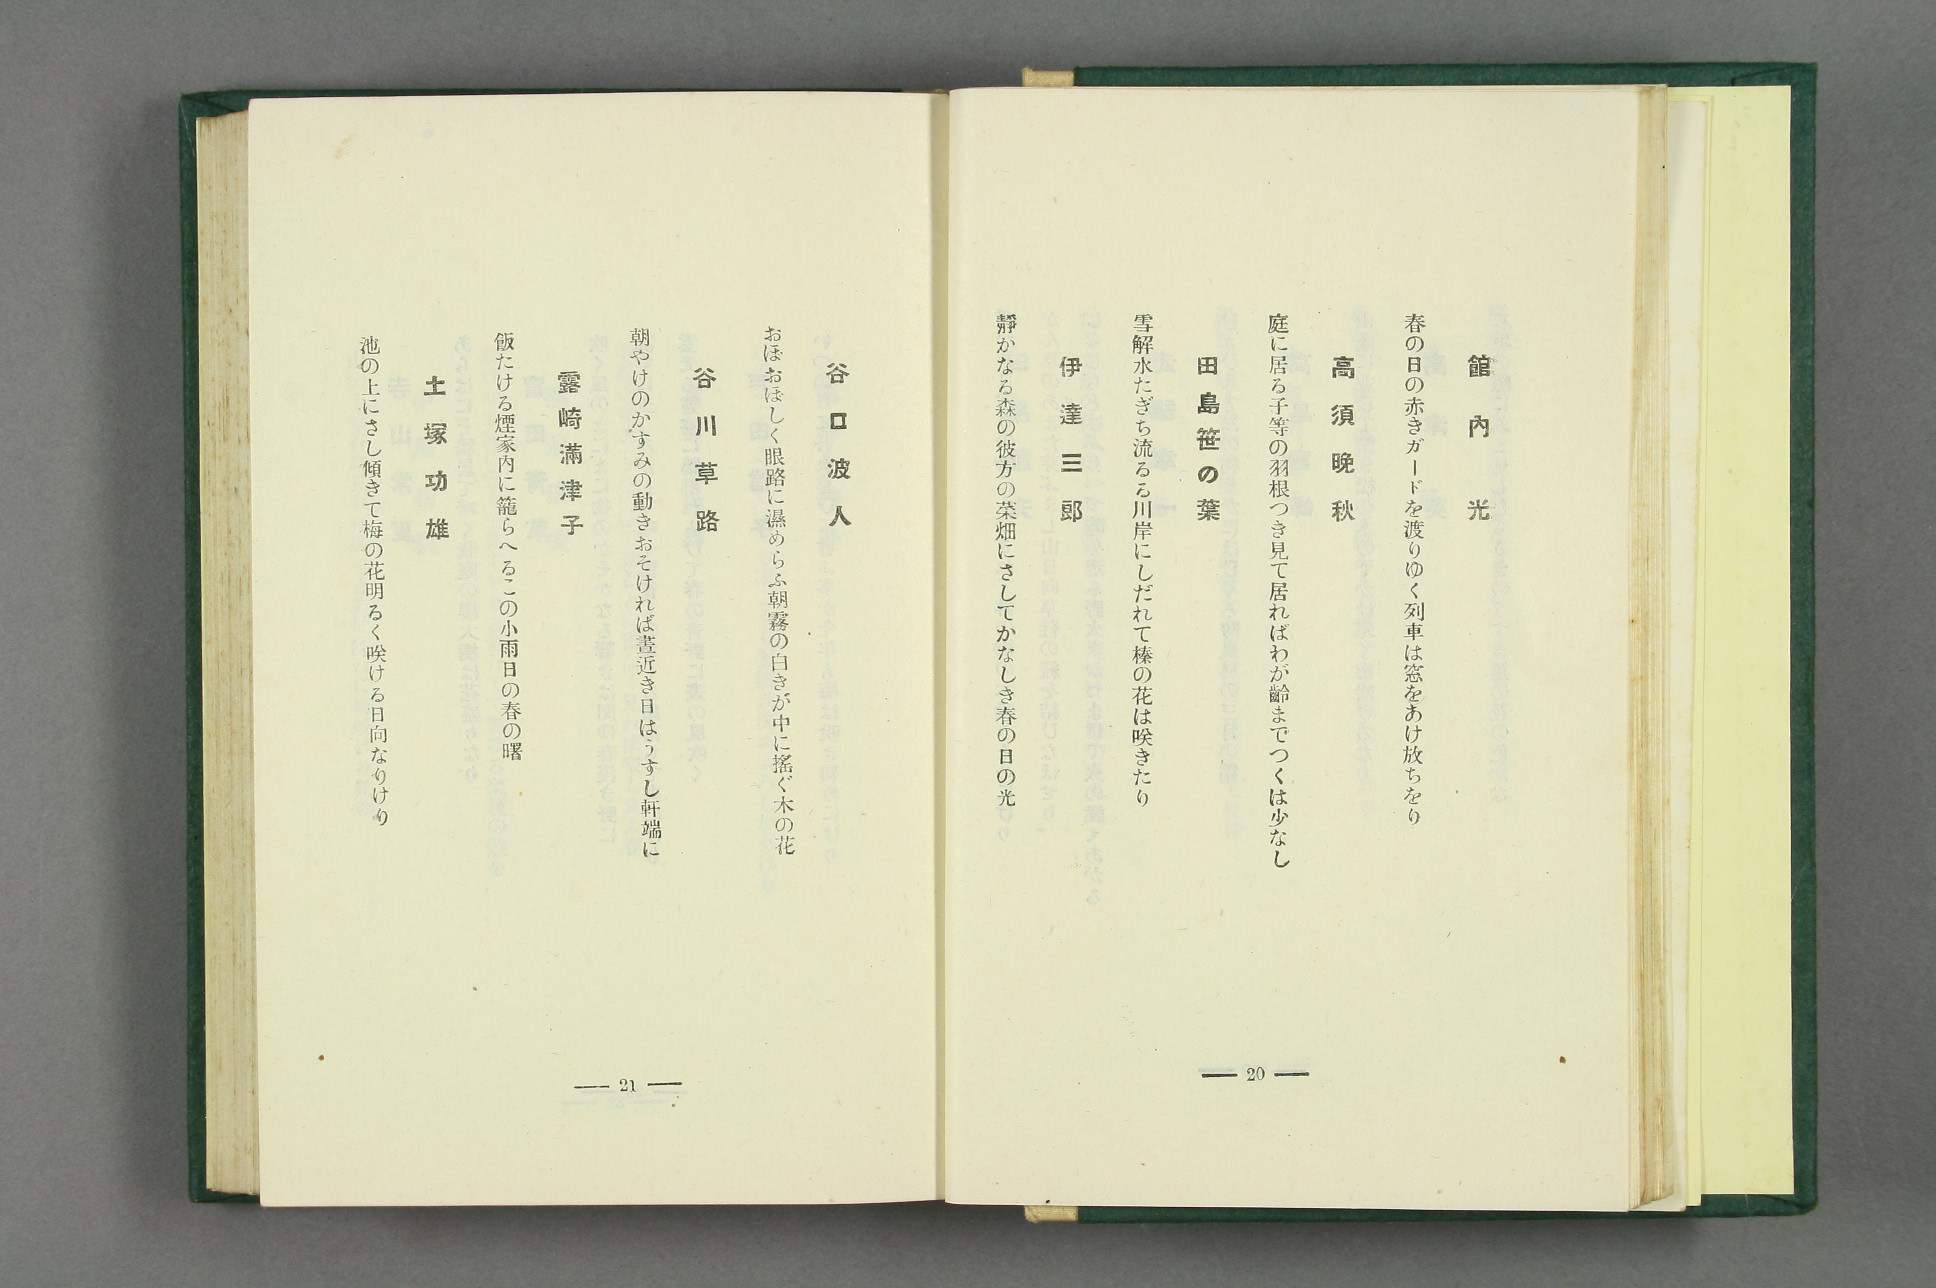 館内光
春の日の赤きガードを渡りゆく列車は窓をあけ放ちをり
高須晩秋
庭に居る子等の羽根つき見て居ればわが齢までつくは少なし
田島笹の葉
雪解水たぎち流るる川岸にしだれて榛の花は咲きたり
伊達三郎
靜かなる森の彼方の菜畑にさしてかなしき春の日の光
— 20 —
谷口波人
おぼおぼしく眼路に濕めらふ朝霧の白きが中に搖ぐ木の花
谷川草路
朝やけのかすみの動きおそければ晝近き日はうすし軒端に
露崎滿津子
飯たける煙家内に籠らへるこの小雨日の春の曙
土塚功雄
池の上にさし傾きて梅の花明るく咲ける日向なりけり
— 21 —